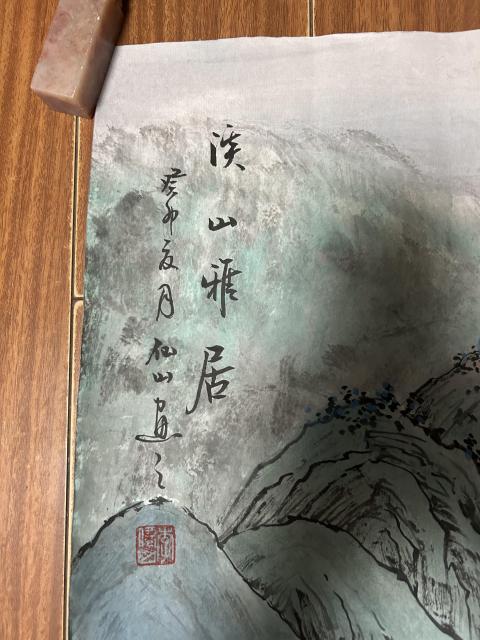 溪山雅居
癸卯夏月仙山畫之